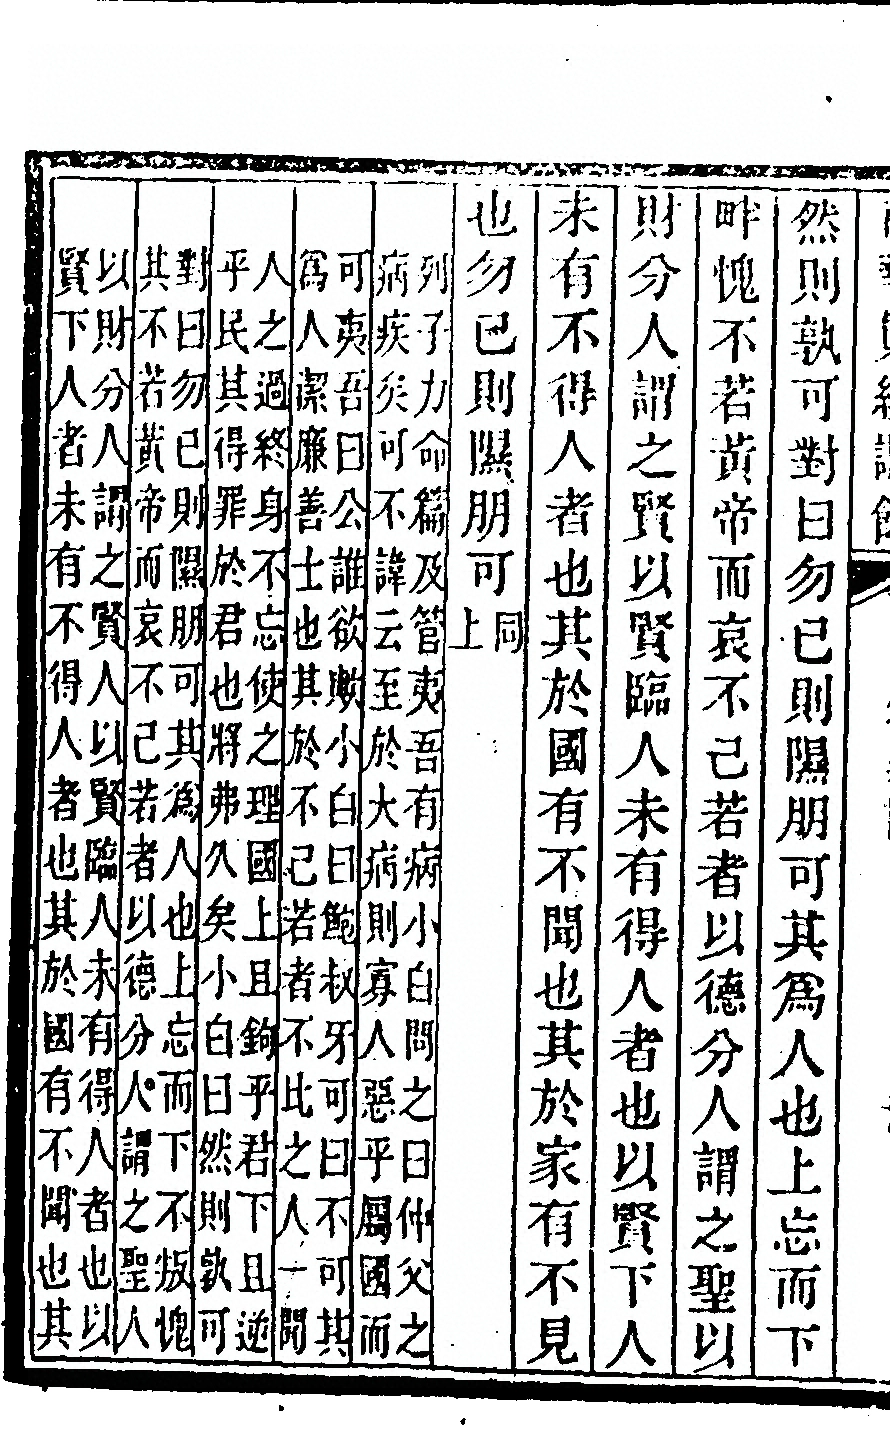 然則孰可對曰勿已則隰朋可其爲人也上忘而下
畔愧不若黃帝而哀不己若者以德分人謂之聖以
財分人謂之賢以賢臨人未有得人者也以賢下人
未有不得人者也其於國有不聞也其於家有不見
也勿已則隰朋可同上
列子力命篇及管夷吾有病小白問之曰仲父之
病疾矣可不諱云至於大病則寡人惡乎屬國而
可夷吾曰公誰欲歟小白曰鮑叔牙可曰不可其
爲人潔廉善士也其於不己若者不比之人一聞
人之過終身不忘使之理國上且鉤乎君下且逆
乎民其得罪於君也將弗久矣小白曰然則孰可
對曰勿已則隰朋可其爲人也上忘而下不叛愧
其不若黃帝而哀不己若者以德分人謂之聖人
以財分人謂之賢人以賢臨人未有得人者也以
賢下人者未有不得人者也其於國有不聞也其